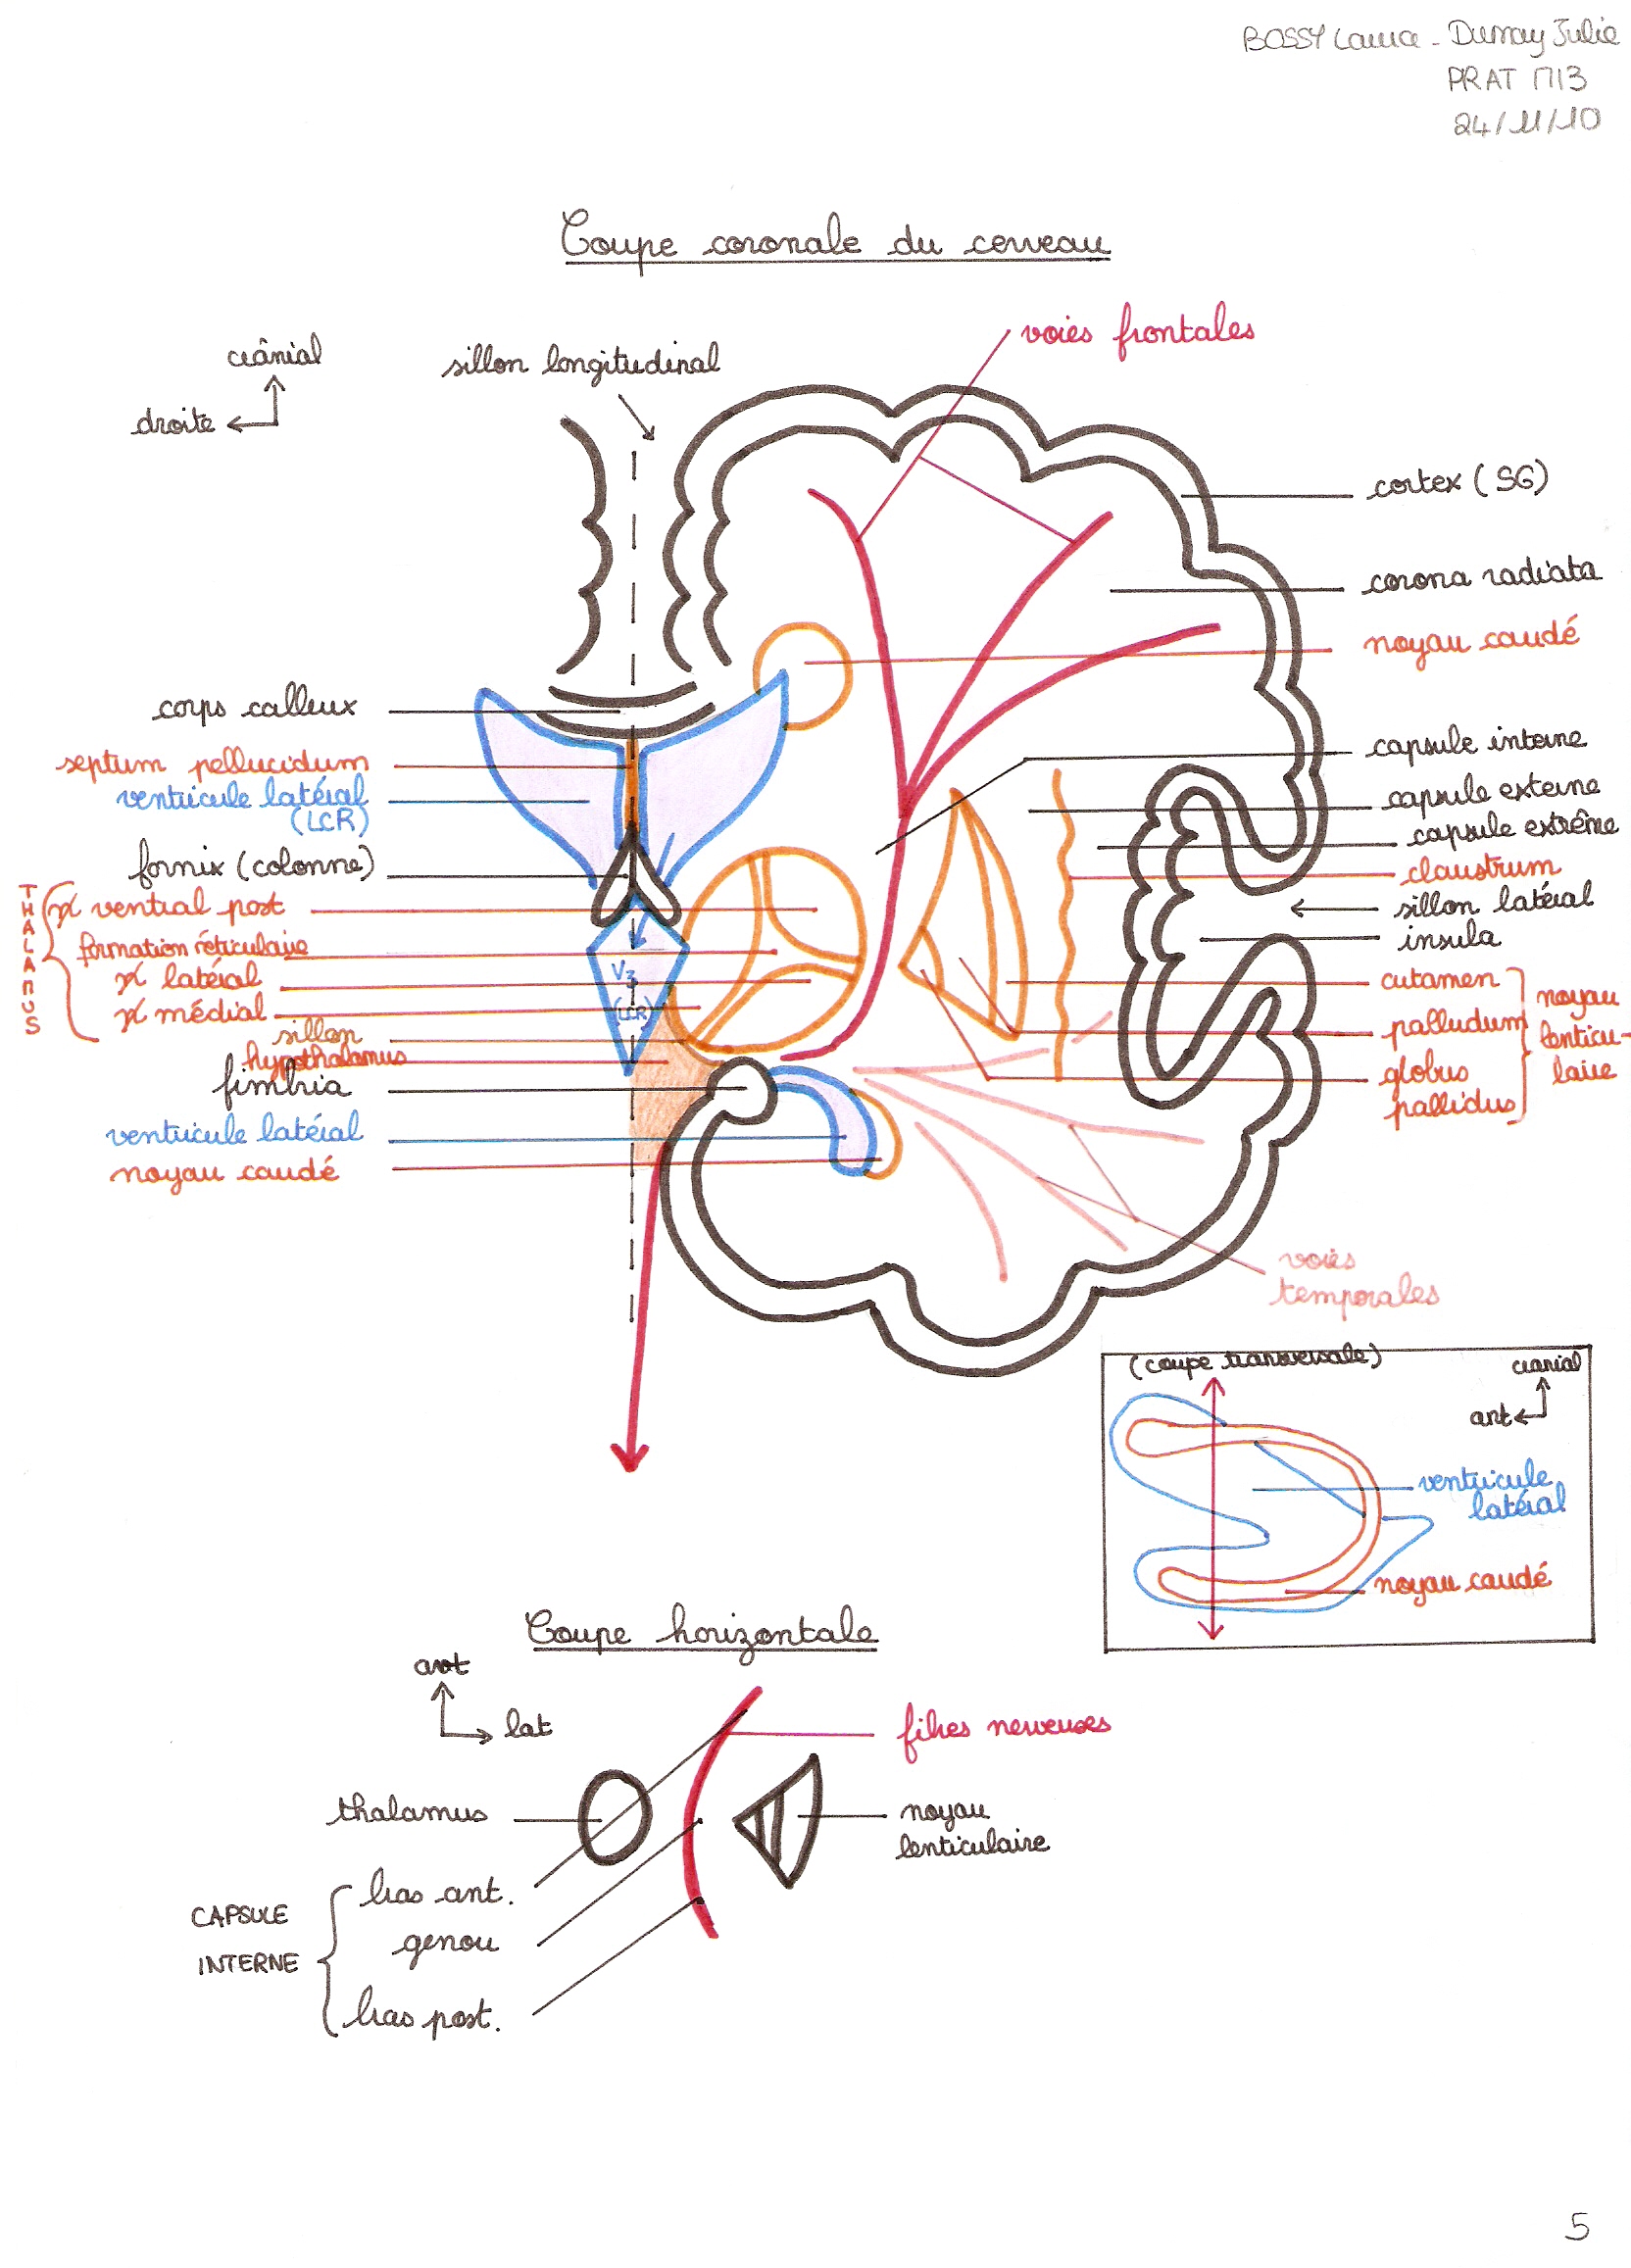 BOSSY Laura - Dumay Julie
PRAT M13
24/11/10
Coupe coronale du cerveau
voies frontales
crânial
droite
sillon longitudinal
cortex (SG)
corona radiata
noyau caudé
corps calleux
septum pellucidum
ventricule latéral
(LCR)
fornix (colonne)
THALAMUS
ventral post
formation réticulaire
latéral
médial
sillon
hypothalamus
fimbria
ventricule latéral
noyau caudé
V3
(LCR)
capsule interne
capsule externe
capsule extrême
claustrum
sillon latéral
insula
cutamen
palludum
globus
pallidus
noyau
lenticu-
laire
voies
temporales
(coupe transversale)
cranial
ant
ventricule
latéral
noyau caudé
Coupe horizontale
ant
lat
fibres nerveuses
thalamus
noyau
lenticulaire
CAPSULE
INTERNE
bras ant.
genou
bras post.
5